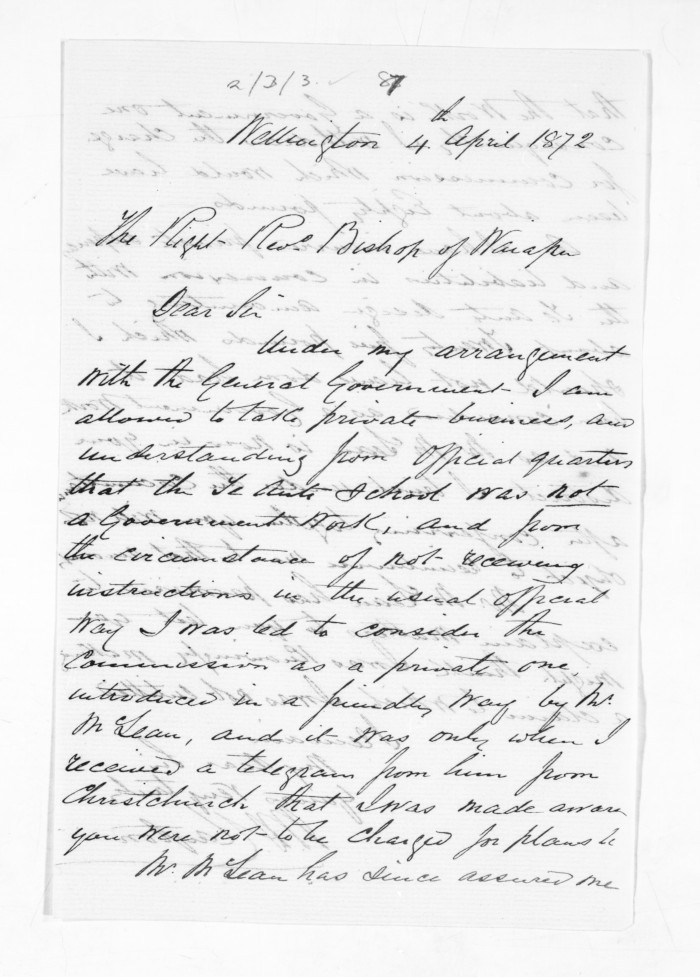 2/3/3. 87
Wellington 4th April 1872
The Right Revd. Bishop of Waiapu
Dear Sir
Under my arrangement
with the General Government I am
allowed to take private business, and
understanding from Official quarters
that the Te Aute School was not
a Government Work, and from
the circumstance of not receiving
instructions in the usual official
way I was led to consider the
Commission as a private one,
introduced in a friendly way by Mr.
McLean, and it was only when I
received a telegram from him from
Christchurch that I was made aware
you were not to be charged for plans &c
Mr. McLean has since assured me